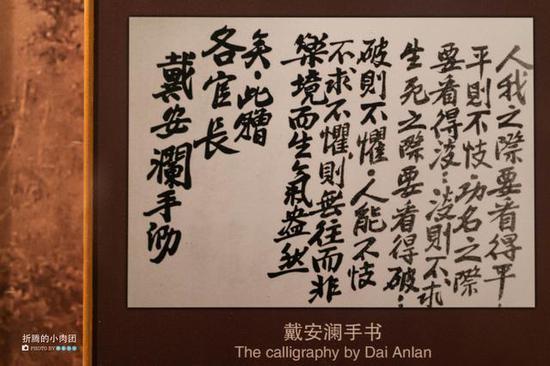 人我之際要看得平！
平則不忮．功名之際
要看得淡．淡則不求
生死之際要看得破！
破則不懼．人能不忮
不求不懼則無往而非
樂境而生氣盎然
矣．此贈
各官長
戴安瀾手泐
戴安澜手书
The calligraphy by Dai Anlan
折腾的小肉团
PHOTO BY